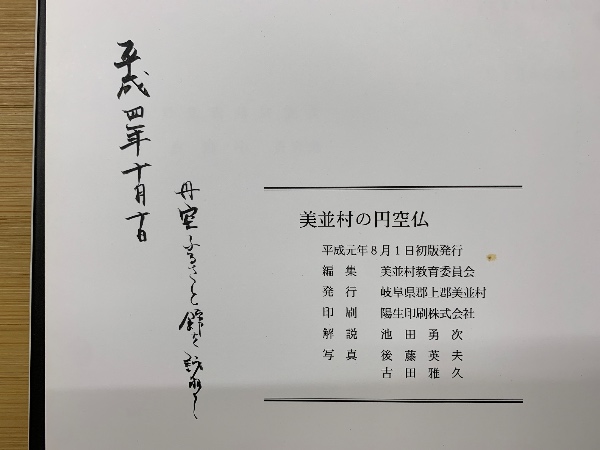 美並村の円空仏
平成元年8月1日初版発行
編集 美並村教育委員会
発行 岐阜県郡上郡美並村
印刷 陽生印刷株式会社
解説 池田勇次
写真 後藤英夫
古田雅久
平成四年十月十日
円空ふるさと館を訪ねて